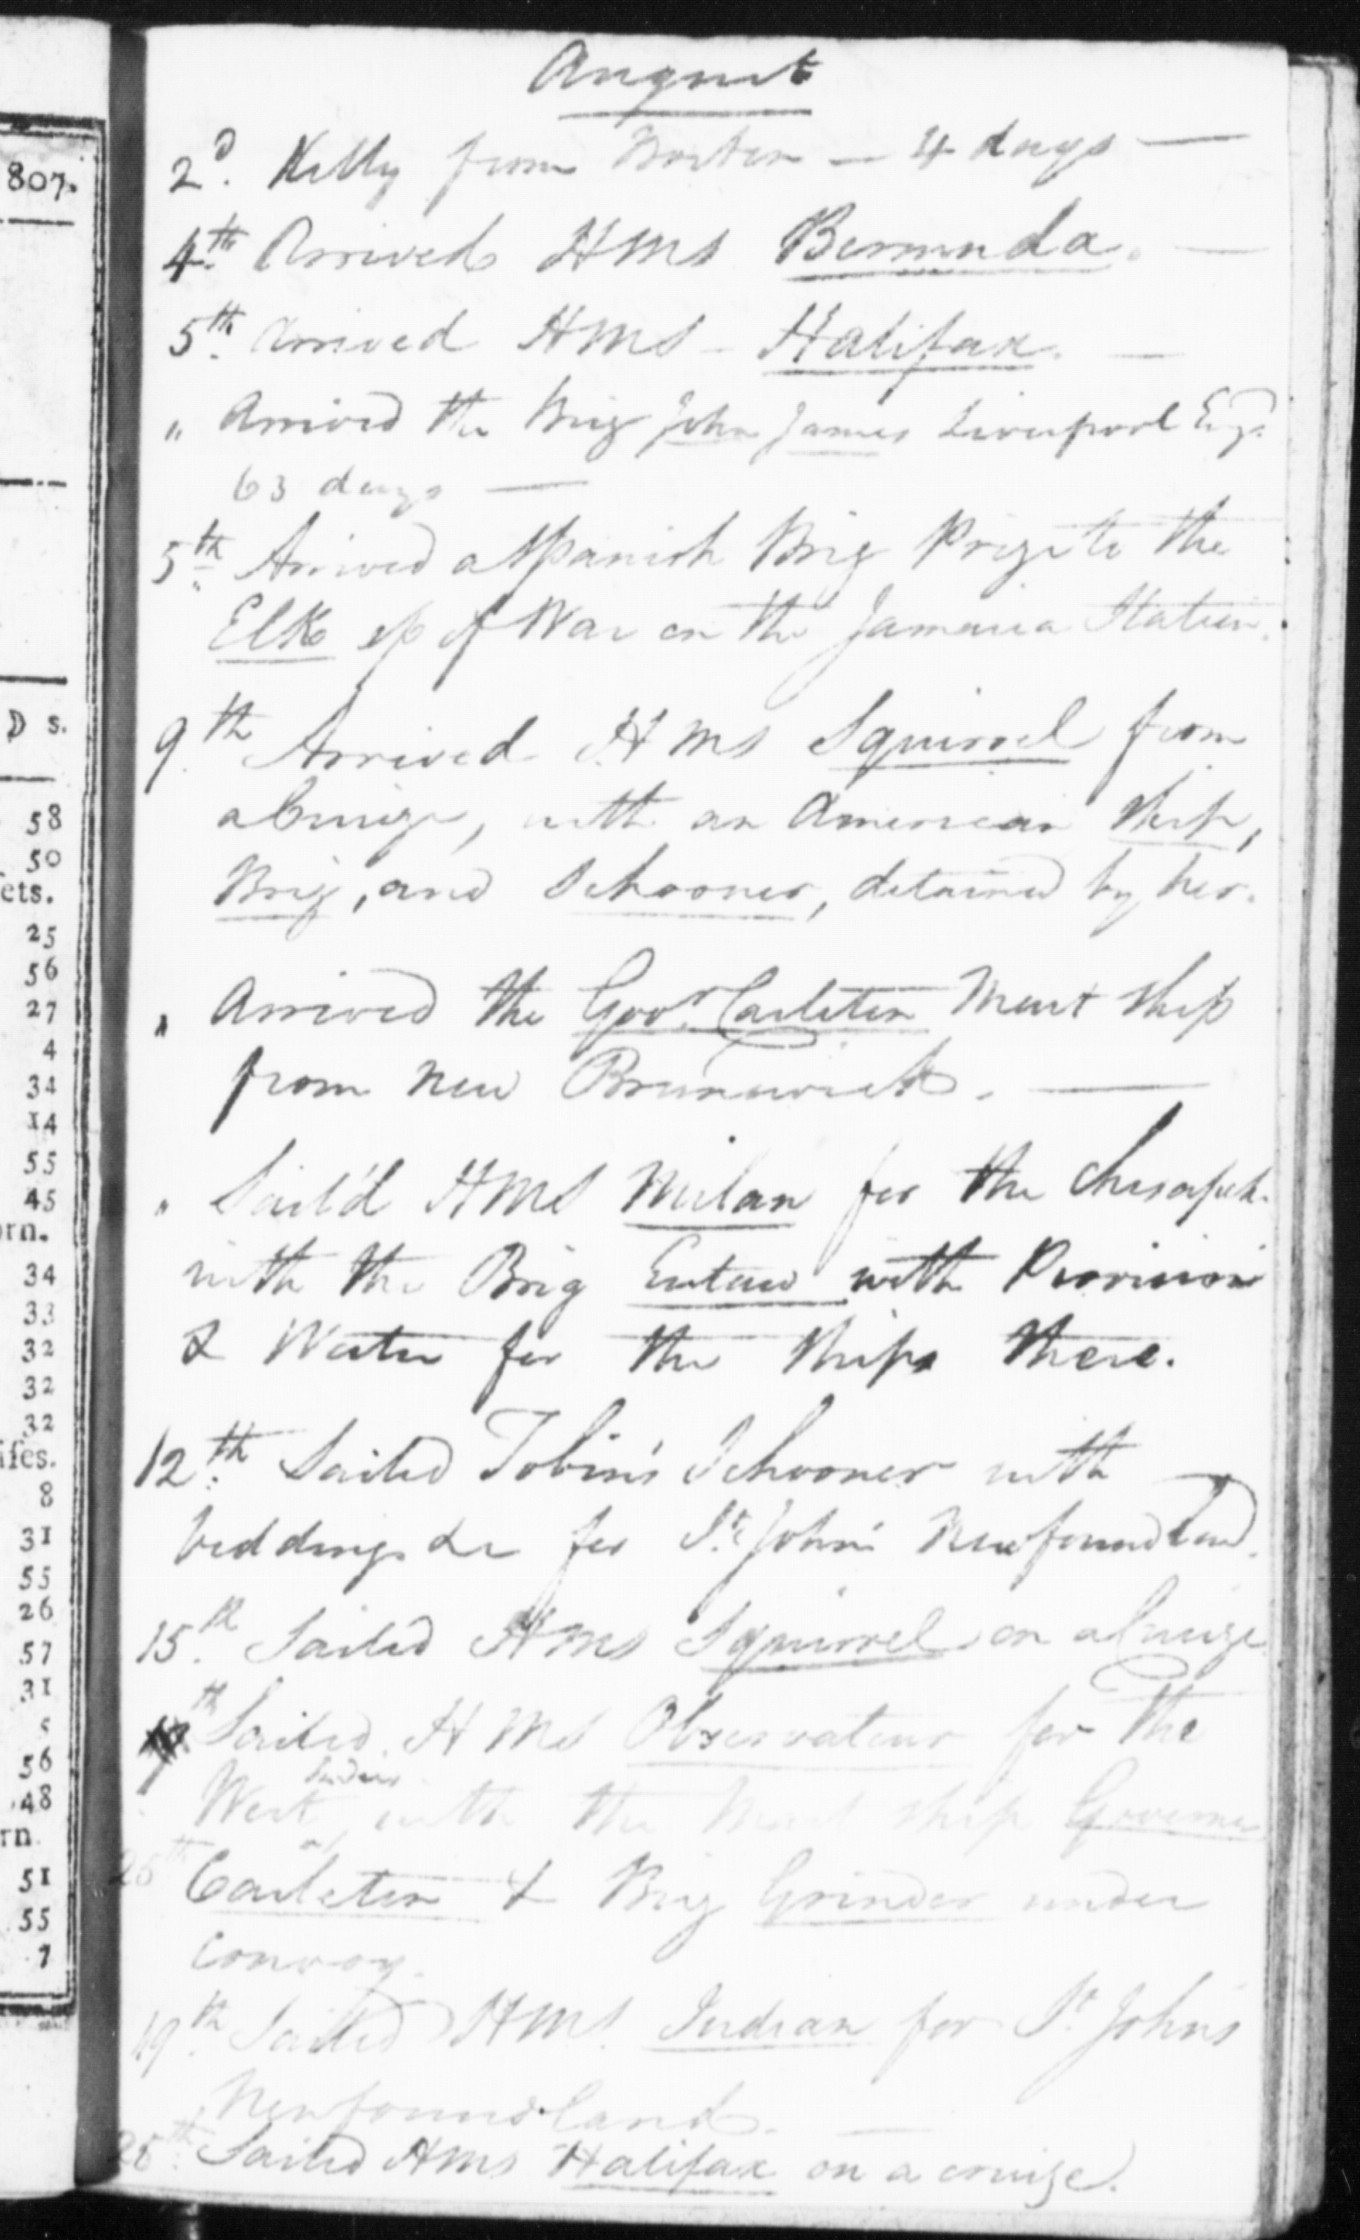 807.
D s.
58
50
ets.
25
56
27
4
34
14
55
45
rn.
34
33
32
32
32
ifes.
8
31
55
26
57
31
5
56
48
rn
51
55
7
August
2D. Kelly from Boston — 4 days —
4th. Arrived HMS Bermuda. —
5th. Arrived HMS - Halifax. —
" Arrived the Brig John James Liverpool Engd.
63 days —
5th Arrived a Spanish Brig Prize to the
Elk of War on the Jamaica Station.
9th Arrived HMS Squirrel from
a Cruize, with an American Ship,
Brig, and Schooner, detained by her.
" Arrived the Govr. Carleton Mert ship
from New Brunswick. —
" Sail'd HMS Milan for the Chesapek.
with the Brig Eutaw with Provision
& Water for the ships there.
12th. Sailed Tobin's Schooner with
bedding &c for St. John's Newfoundland.
15th. Sailed HMS Squirrel on a Cruize
th Sailed HMS Observateur for the
West Indies with the Mert ship Governor
Carleton & Brig Grinder under
convoy.
19th. Sailed HMS. Indian for St. John's
Newfoundland. —
Sailed HMS Halifax on a cruize.